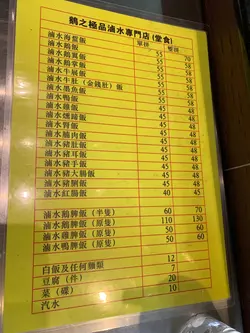 鵝之極品滷水專門店(堂食)
單拼 雙拼
滷水海蜇飯 55 70
滷水鵝飯 55 58
滷水鵝翼飯 55 58
滷水鵝掌飯 55 58
滷水牛展飯 55 58
滷水牛肚(金錢肚)飯 55 58
滷水墨魚飯 55 58
滷水鴨飯 45 48
滷水雞飯 45 48
滷水燻蹄飯 45 48
滷水腎飯 45 48
滷水腩肉飯 45 48
滷水豬肚飯 45 48
滷水豬耳飯 45 48
滷水豬手飯 45 48
滷水豬大腸飯 45 48
滷水豬脷飯 45 48
滷水紅腸飯 40 45
滷水鵝脾飯(半隻) 60 70
滷水鵝脾飯(原隻) 110 130
滷水雞脾飯(原隻) 50 60
滷水鴨脾飯(原隻) 50 60
白飯及任何麵類 12
豆腐(件) 7
菜(碟) 20
汽水 10